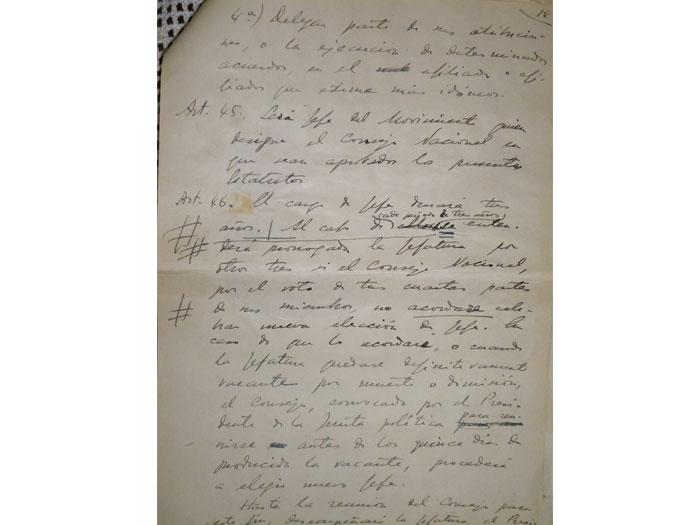 14
4ª) Delegar parte de sus atribucio-
nes, o la ejecución de determinados
acuerdos, en el afiliado o afi-
liados que estime más idóneos.
Art. 45. Será Jefe del Movimiento quien
designe el Consejo Nacional en
que sean aprobados los presentes
Estatutos
Art. 46. El cargo de Jefe durará tres
(cada período de tres años)
años. Al cabo de se enten-
derá prorrogada la Jefatura por
otros tres si el Consejo Nacional,
por el voto de tres cuartas partes
de sus miembros, no acordase cele-
brar nueva elección de Jefe. En
caso de que lo acordare, o cuando
la Jefatura quedare definitivamente
vacante por muerte o dimisión,
el Consejo, convocado por el Presi-
dente de la Junta política para reu-
nirse antes de los quince días de
producida la vacante, procederá
a elegir nuevo Jefe.
Hasta la reunión del Consejo para
este fin, desempeñará la Jefatura el Presi-